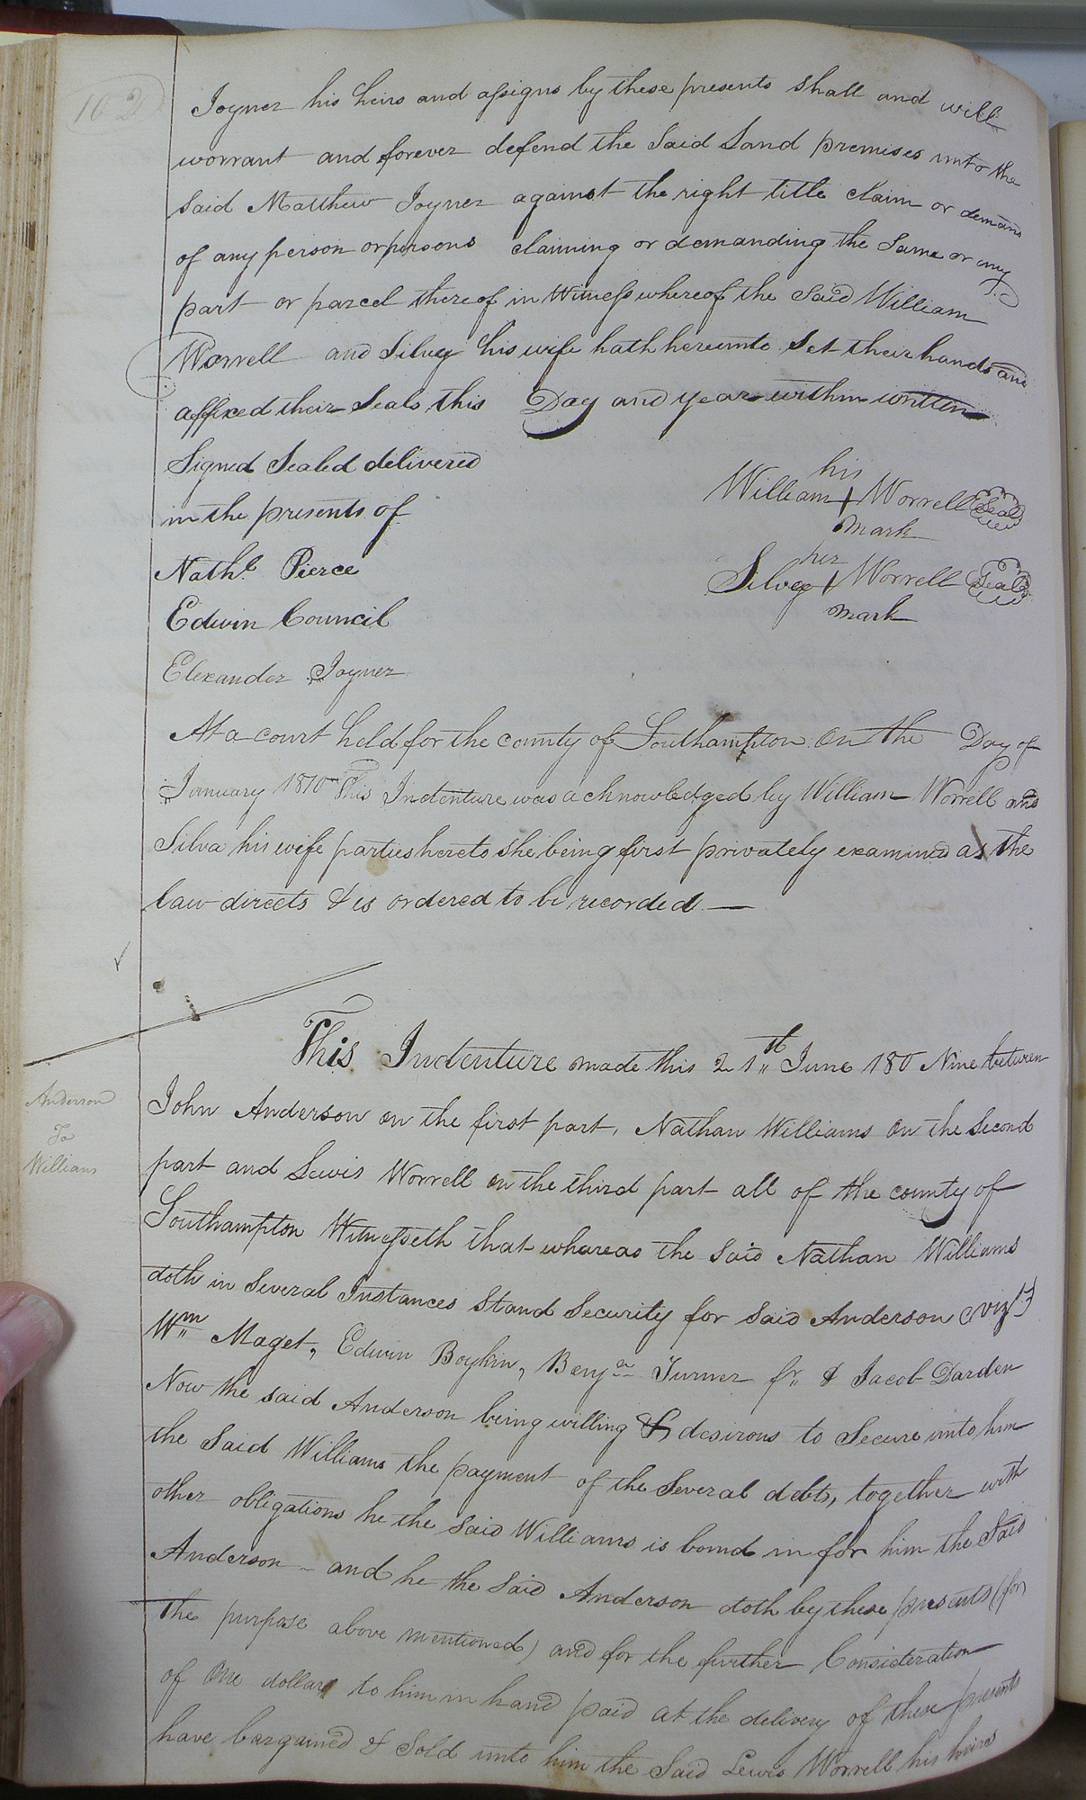 162
Joyner his heirs and assigns by these presents shall and will
warrant and forever defend the Said Land premises unto the
Said Matthew Joyner against the right title claim or demand
of any person or persons claiming or demanding the Same or any
part or parcel thereof in Witness whereof the Said William
Worrell and Silvey his wife hath hereunto Set their hands and
affixed their Seals this Day and year within written
Signed Sealed delivered
in the presents of
Nathl. Pierce
Edwin Council
Elexander Joyner
his
William + Worrell Seal
mark
her
Silvey + Worrell Seal
mark
At a court held for the county of Southampton On the Day of
January 1810 This Indenture was acknowledged by William Worrell and
Silva his wife parties hereto She being first privately examined as the
law directs & is ordered to be recorded —
Anderson
To
Williams
This Indenture made this 21st June 180 Nine between
John Anderson on the first part, Nathan Williams on the Second
part and Lewis Worrell on the third part all of the county of
Southampton Witnesseth that whereas the Said Nathan Williams
doth in Several Instances Stand Security for Said Anderson (vizt)
Wm Maget, Edwin Boykin, Benjn Turner Jr. & Jacob Darden
Now the said Anderson being willing & desirous to Secure unto him
the Said Williams the payment of the Several debts, together with
other obligations he the Said Williams is bound in for him the Said
Anderson - and he the Said Anderson doth by these presents (for
the purpose above mentioned) and for the further Consideration
of One dollar to him in hand paid at the delivery of these presents
have bargained & Sold unto him the Said Lewis Worrell his heirs